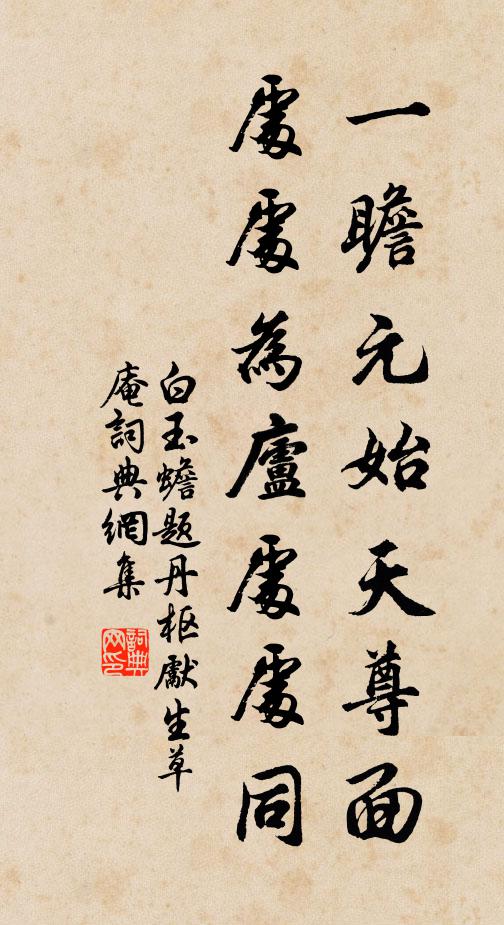 一瞻元始天尊面
處處為廬處處同
白玉蟾題丹樞獻生草
庵詞典網集
詞典网印